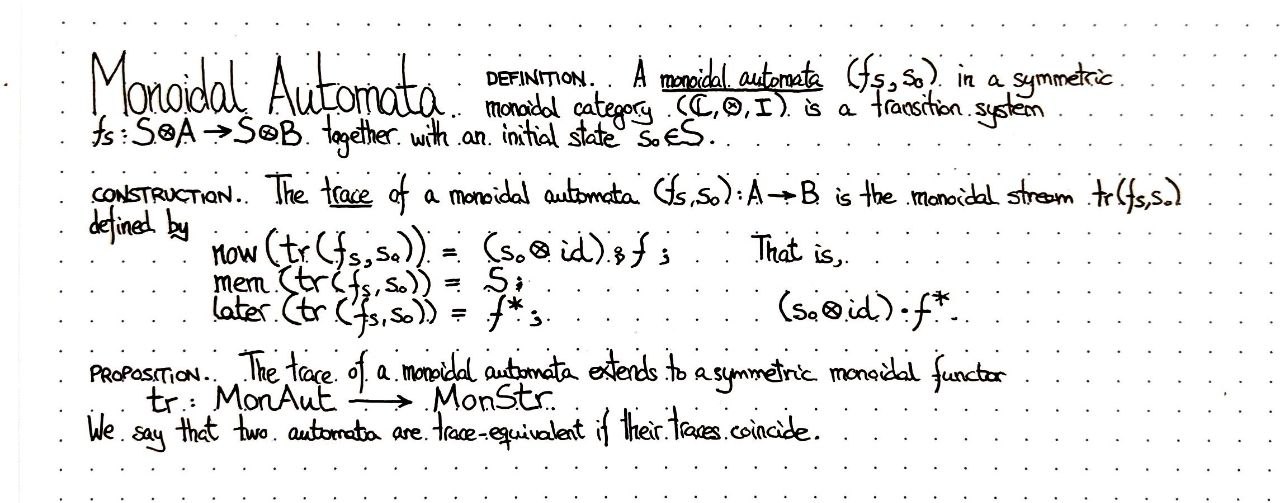 Monoidal Automata. DEFINITION. A monoidal automata (fs, s₀) in a symmetric
monoidal category (ℂ, ⊗, I) is a transition system
fs : S⊗A → S⊗B together with an initial state s₀ ∈ S.
CONSTRUCTION. The trace of a monoidal automata (fs, s₀) : A → B is the monoidal stream tr(fs, s₀)
defined by
now (tr (fs, s₀)) = (s₀ ⊗ id) ⨾ f ; That is,
mem (tr (fs, s₀)) = S ;
later (tr (fs, s₀)) = f* ; (s₀ ⊗ id) · f*.
PROPOSITION. The trace of a monoidal automata extends to a symmetric monoidal functor
tr : MonAut ⟶ MonStr.
We say that two automata are trace-equivalent if their traces coincide.